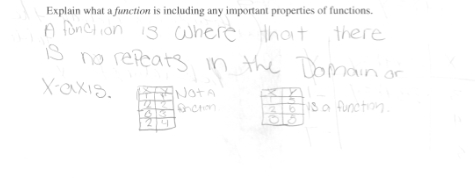 Explain what a function is including any important properties of functions.
A function is where that there
is no repeats in the Domain or
X-axis.
Not A
function
is a function.
X Y
2 4
X Y